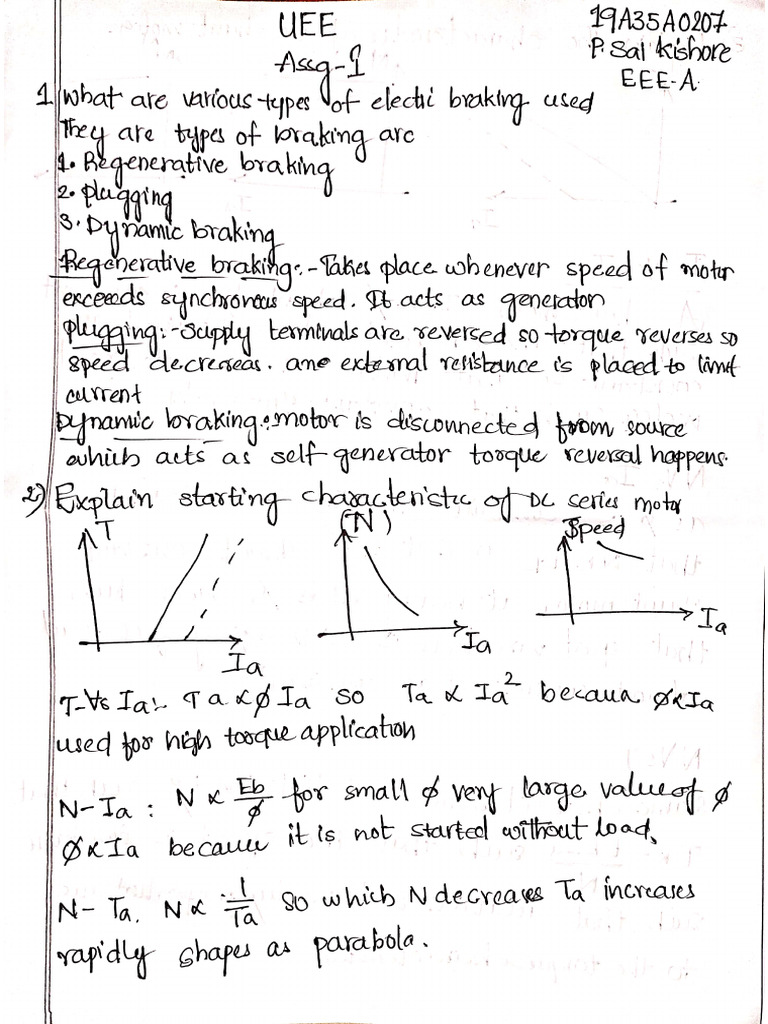 UEE
19A35A0207
Assg-1
P. Sai Kishore
EEE-A
1 What are various types of electric braking used
They are types of braking are
1. Regenerative braking
2. plugging
3. Dynamic braking
Regenerative braking:-Takes place whenever speed of motor
exceeds synchronous speed. It acts as generator
plugging:-supply terminals are reversed so torque reverses so
speed decrereas. ane external resistance is placed to limit
current
Dynamic braking:motor is disconnected from source
which acts as self generator torque reversal happens.
2) Explain starting characteristic of DC series motor
T
(N)
Speed
Ia
Ia
Ia
T-Vs Ia:- Ta ∝ ϕ Ia so Ta ∝ Ia² becaun ϕ∝Ia
used for high torque application
N-Ia : N ∝ Eb/ϕ for small ϕ very large value of ϕ
ϕ∝Ia because it is not started without load,
N- Ta. N∝ 1/Ta so which N decreases Ta increases
rapidly shapes as parabola.